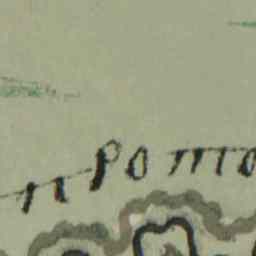 n pomo